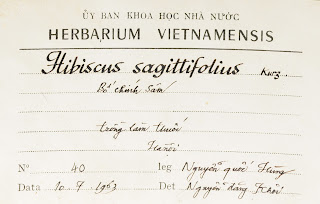 ỦY BAN KHOA HỌC NHÀ NƯỚC
HERBARIUM VIETNAMENSIS
Hibiscus sagittifolius Kurz.
Bố chính sâm
trồng làm thuốc
Hanoi
N° 40 leg Nguyễn quốc Hùng
Data 10.9.1963 Det Nguyễn đăng Khôi